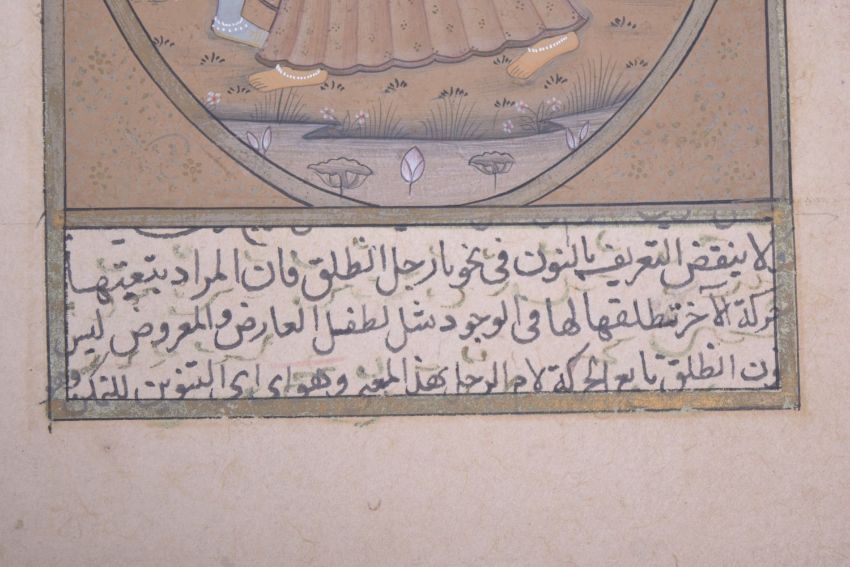 لا ينقض التعريف بالنون فى نحو يا رجل انطلق فان المراد بتبعيتها
حركة الآخر تطلقها لها فى الوجود مثل لطفل العارض والمعروض ليس
نون انطلق تابع لحركة لام الرجل بهذا المعنى وهو اى التنوين للتمكن وهو